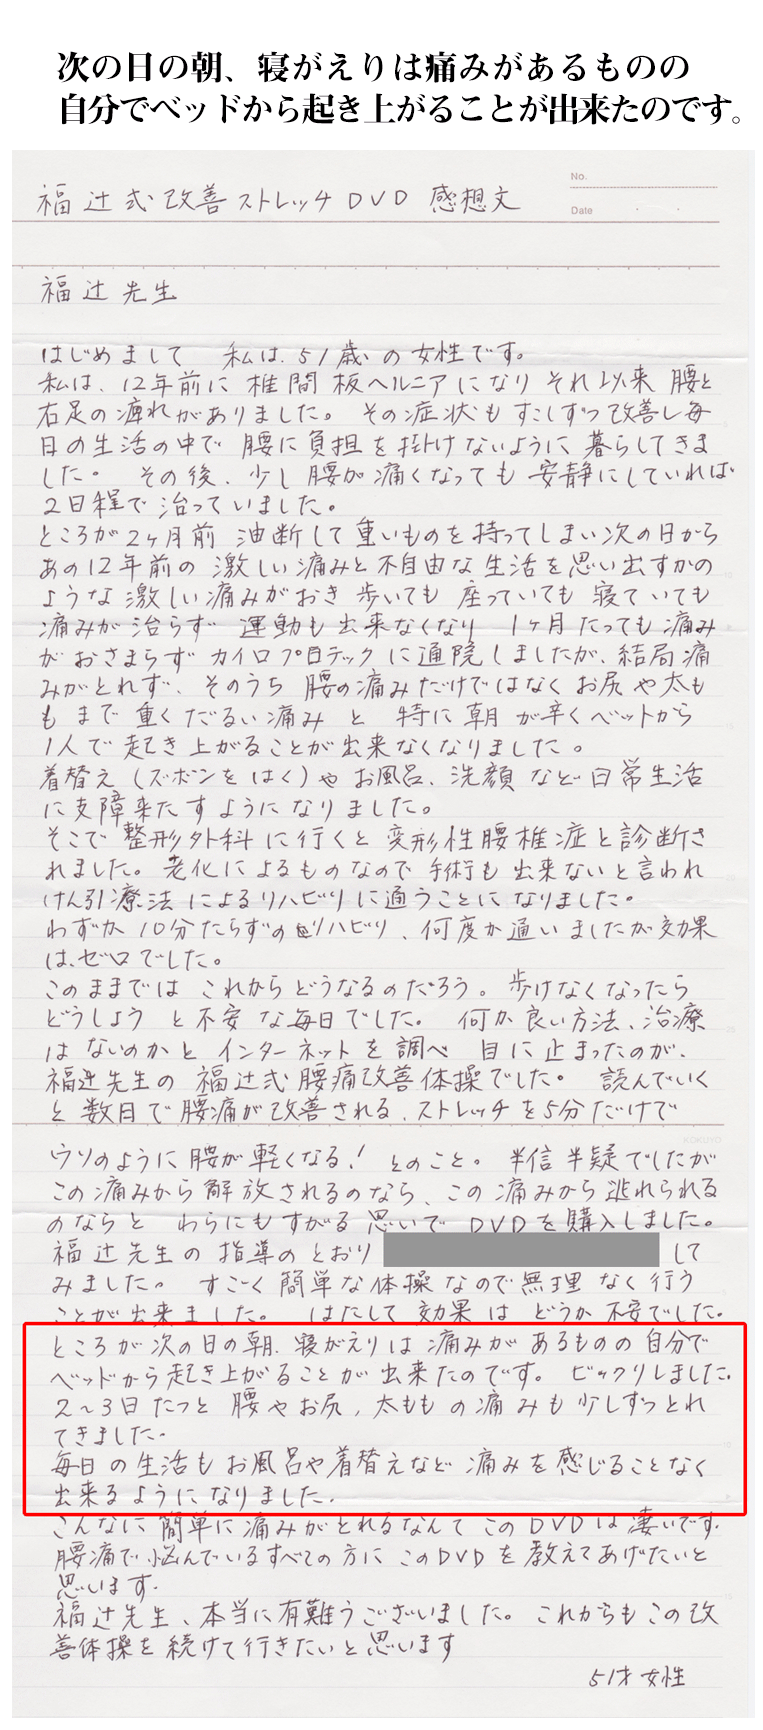 次の日の朝、寝がえりは痛みがあるものの
自分でベッドから起き上がることが出来たのです。
No.
Date
福辻式改善ストレッチDVD 感想文
福辻先生
はじめまして 私は、51歳の女性です。
私は、12年前に椎間板ヘルニアになりそれ以来 腰と
右足の痺れがありました。その症状もすこしずつ改善し毎
日の生活の中で 腰に負担を掛けないように暮らしてきま
した。 その後、少し腰が痛くなっても安静にしていれば
2日程で治っていました。
ところが2ヶ月前 油断して重いものを持ってしまい次の日から
あの12年前の激しい痛みと不自由な生活を思い出すかの
ような激しい痛みがおき歩いても座っていても寝ていても
痛みが治らず 運動も出来なくなり 1ヶ月たっても痛み
がおさまらずカイロプロテックに通院しましたが、結局痛
みがとれず、そのうち腰の痛みだけではなくお尻や太も
もまで重くだるい痛みと 特に朝が辛くベットから
1人で起き上がることが出来なくなりました。
着替え(ズボンをはく)やお風呂、洗顔など日常生活
に支障来たすようになりました。
そこで整形外科に行くと変形性腰椎症と診断さ
れました。老化によるものなので手術も出来ないと言われ
けん引療法によるリハビリに通うことになりました。
わずか10分たらずのリハビリ、何度か通いましたが効果
は、ゼロでした。
このままでは これからどうなるのだろう。歩けなくなったら
どうしよう と不安な毎日でした。 何か良い方法、治療
はないのかとインターネットを調べ 目に止まったのが、
福辻先生の福辻式腰痛改善体操でした。 読んでいく
と数日で腰痛が改善される、ストレッチを5分だけで
KOKUYO
ウソのように腰が軽くなる! とのこと。半信半疑でしたが
この痛みから解放されるのなら、この痛みから逃れられる
のならと わらにもすがる思いでDVDを購入しました。
福辻先生の指導のとおり して
みました。 すごく簡単な体操なので無理なく行う
ことが出来ました。 はたして効果はどうか不安でした。
ところが次の日の朝、寝がえりは痛みがあるものの自分で
ベッドから起き上がることが出来たのです。ビックリしました。
2~3日たつと腰やお尻、太ももの痛みも少しずつとれ
てきました。
毎日の生活もお風呂や着替えなど痛みを感じることなく
出来るようになりました。
こんなに簡単に痛みがとれるなんてこのDVDは凄いです。
腰痛で悩んでいるすべての方にこのDVDを教えてあげたいと
思います。
福辻先生、本当に有難うございました。これからもこの改
善体操を続けて行きたいと思います
51才女性